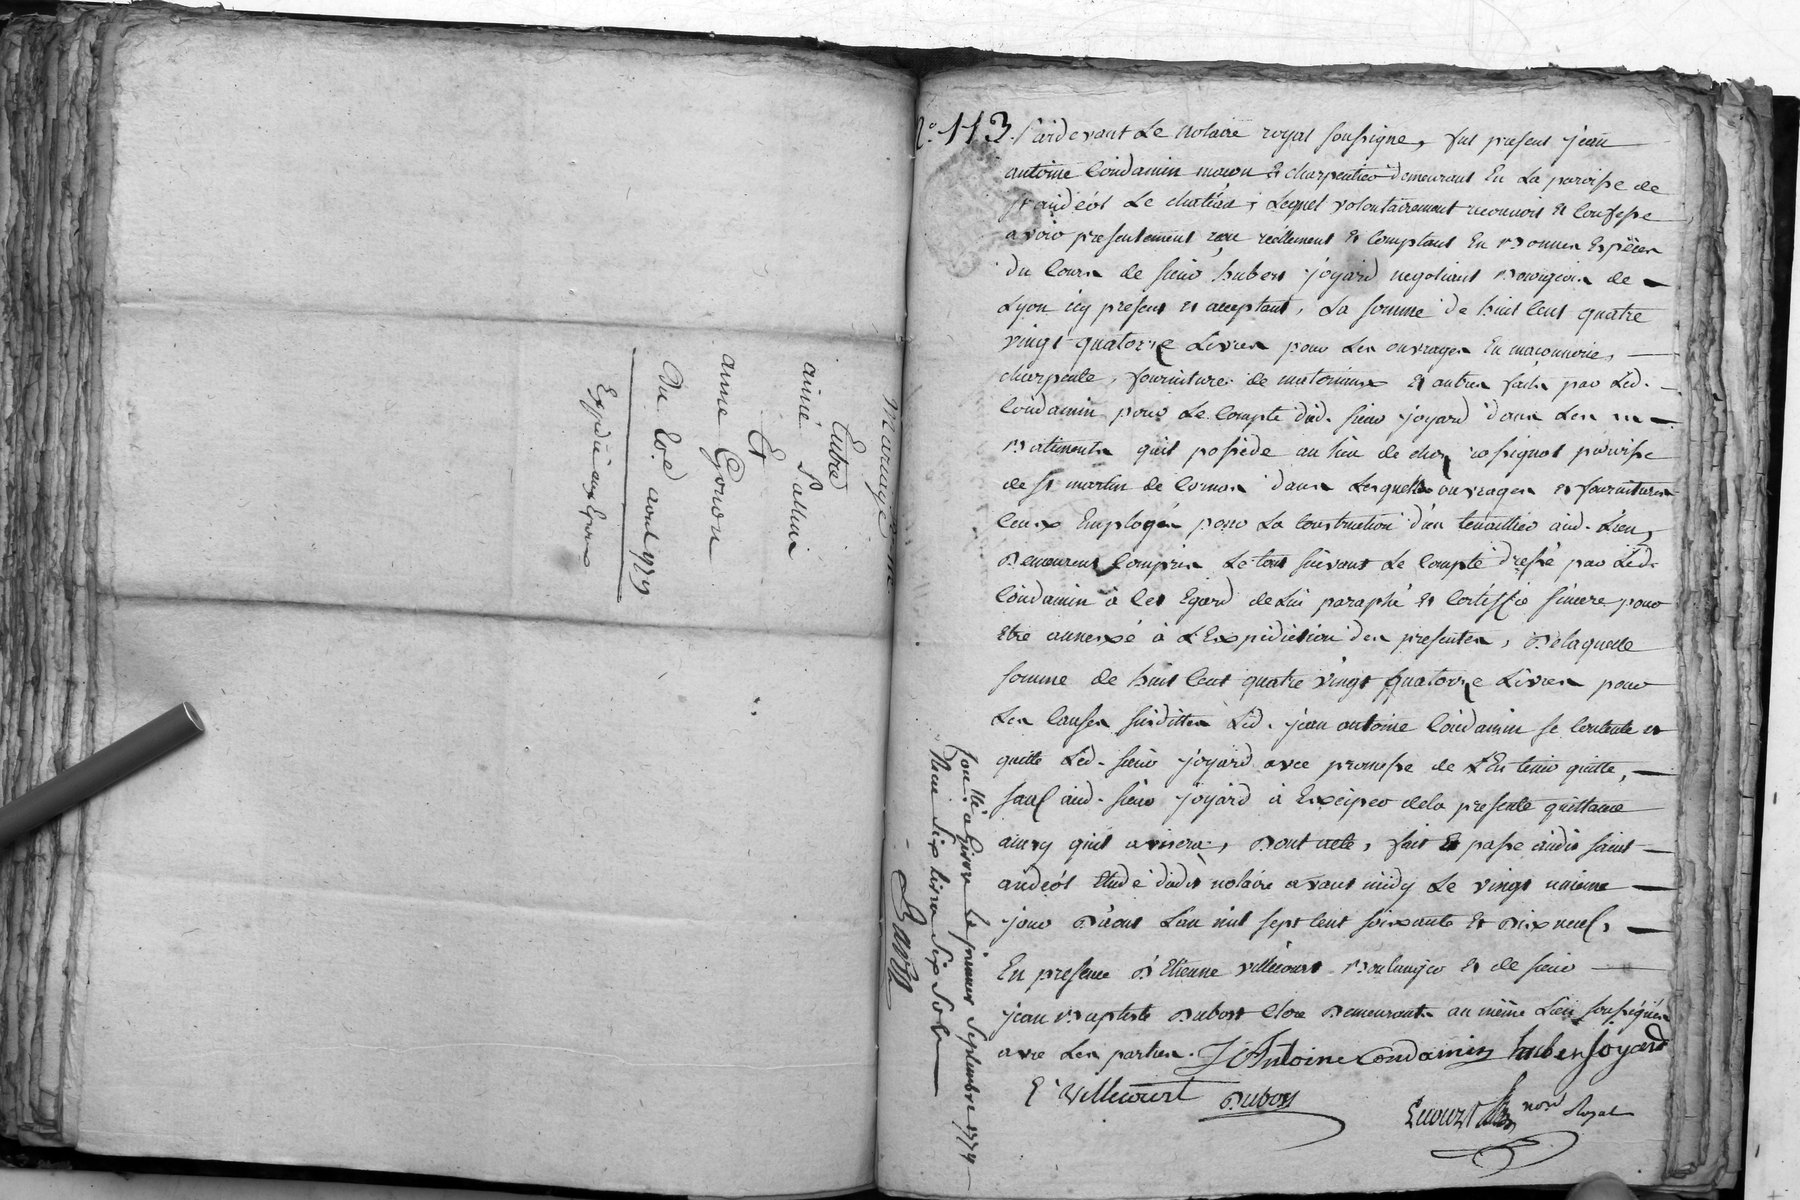 Mariage
Entre
aimé
Et
anne Goiron
Du 20e aout 1779
Expédié aux Epoux
No. 113. Pardevant Le Notaire royal soussigné, fut present jean
antoine Condamin macon et charpentier demeurant En La paroisse de
st andéol Le chateau, Lequel volontairement reconnoit et Confesse
avoir presentement recu réellement et Comptant En Bonnes Espèces
du Cours de sieur hubert joyard negotiant Bourgeois de
Lyon icy present et acceptant, La somme de huit Cent quatre
vingt quatorze Livres pour Les ouvrages En maconnerie,
charpente, fournitures de materiaux et autres faits par Led.
Condamin pour Le Compte dud. sieur joyard dans Les
Batiments quil possède au lieu de chez rossignol paroisse
de st martin de Cornas dans Lesquels ouvrages et fournitures
Ceux Employés pour La Construction d'un tenaillier aud. Lieu,
Demeurent Compris Le tout suivant Le Compte dressé par Led.
Condamin à Cet Egard de Lui paraphé et Certiffié sincere pour
Etre annexé à L'Expédietion des presentes, De laquelle
somme de huit Cent quatre vingt quatorze Livres pour
Les Causes susdittes Led. jean antoine Condamin se Contente et
quitte Led. sieur joyard avec promesse de L'En tenir quitte,
sauf aud. sieur joyard à Exciper de la presente quittance
ainsy quil avisera, Dont acte, fait et passé audit saint
andéol Etude dudit notaire avant midy Le vingt unieme
jour D'aout L'an mil sept Cent soixante et Dix neuf,
En presence D'Etienne villecourt Boulanger et de sieur
jean Baptiste Dubost Clerc Demeurants au même Lieu soussignés
avec Les parties. J Antoine Condamin hubert Joyard
E villecourt Dubost
nore Royal
Con.lé a Givors Le premier Septembre 1779
Reçu Six livres Six Sols